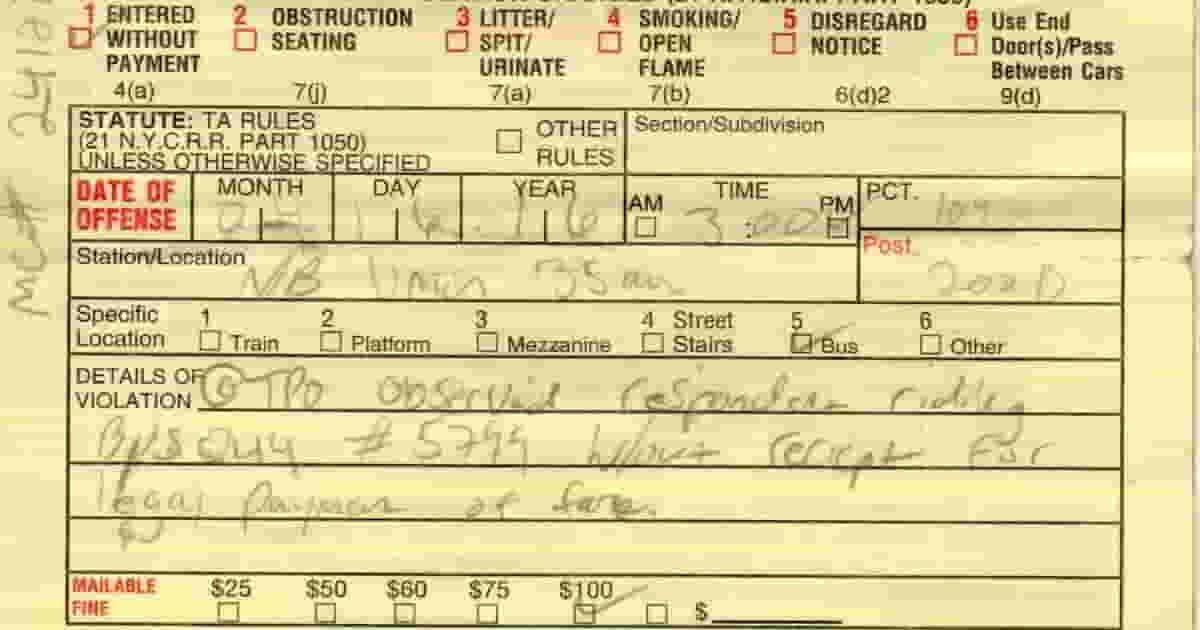 1 ENTERED WITHOUT PAYMENT 4(a)
2 OBSTRUCTION SEATING 7(j)
3 LITTER/ SPIT/ URINATE 7(a)
4 SMOKING/ OPEN FLAME 7(b)
5 DISREGARD NOTICE 6(d)2
6 Use End Door(s)/Pass Between Cars 9(d)
STATUTE: TA RULES
(21 N.Y.C.R.R. PART 1050)
UNLESS OTHERWISE SPECIFIED
OTHER RULES
Section/Subdivision
DATE OF OFFENSE
MONTH DAY YEAR
16 16
AM TIME PM
3:00
PCT. 109
Station/Location
N/B main 35 av
Post
202D
Specific Location
1 Train
2 Platform
3 Mezzanine
4 Street Stairs
5 Bus
6 Other
DETAILS OF VIOLATION
TPO observed respondent riding
Bus Q44 # 5799 w/out receipt for
legal payment of fare.
MAILABLE FINE
$25 $50 $60 $75 $100 $
MC#